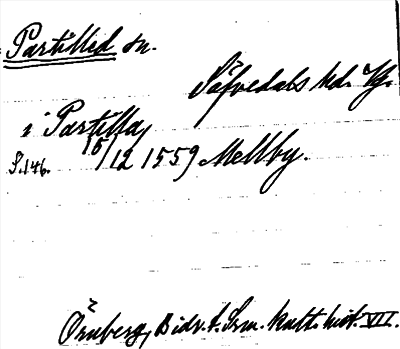 Partilled sn.
Säfvedals hd. Vg.
i Partilla,
S. 146. 15/12 1559 Mellby.
Örnberg, Bidr. t. Srm. kult. hist. VII.